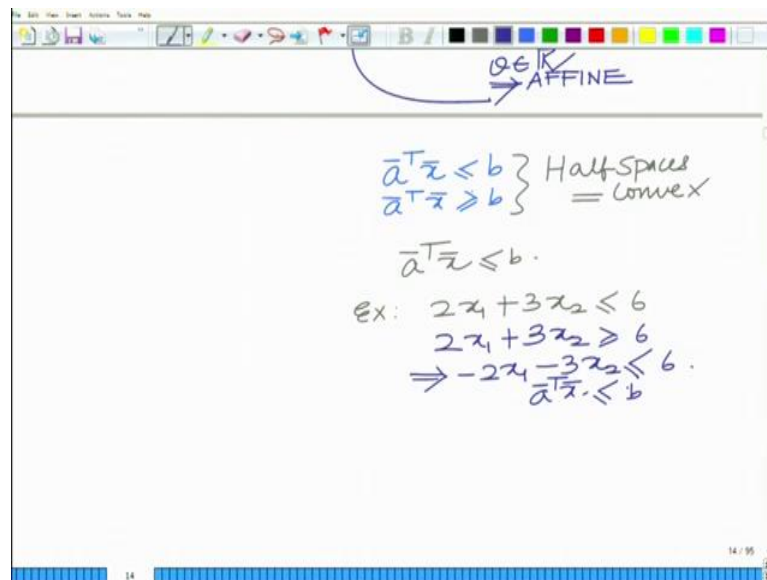 File Edit View Insert Actions Tools Help
θ ∈ ℝ
⇒ AFFINE
āᵀx̄ ≤ b } Half Spaces
āᵀx̄ ≥ b } = convex
āᵀx̄ ≤ b.
Ex: 2x₁ + 3x₂ ≤ 6
2x₁ + 3x₂ ≥ 6
⇒ -2x₁ - 3x₂ ≤ 6.
āᵀx̄. ≤ b
14 / 95
14